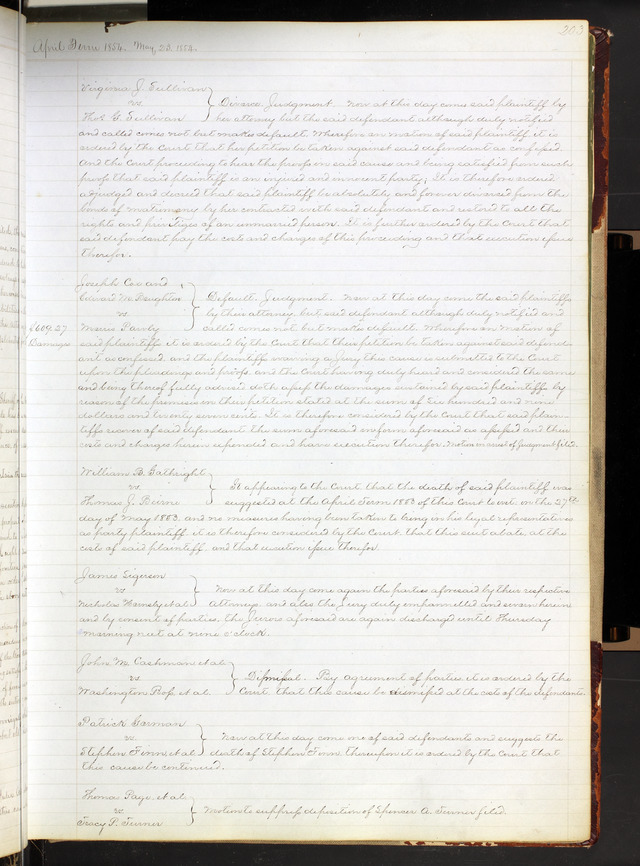 203
April Term 1854. May, 23, 1853.
Virginia J. Sullivan
vs
Thos G. Sullivan
Divorce. Judgment. Now at this day comes said plaintiff by
her attorney but the said defendant although duly notified
and called comes not but makes default. Wherefore on motion of said plaintiff it is
ordered by the Court that her petition be taken against said defendant as confessed.
And the Court proceeding to hear the proofs on said cause and being satisfied from such
proof that said plaintiff is an injured and innocent party; It is therefore ordered
adjudged and decreed that said plaintiff be absolutely and forever divorced from the
bonds of matrimony by her contracted with said defendant and restored to all the
rights and privileges of an unmarried person. It is further ordered by the Court that
said defendant pay the costs and charges of this proceeding and that execution issue
therefor.
Joseph Coo and
Edward M. Deughton
vs
Pauly
Default. Judgment. Now at this day come the said plaintiffs
by their attorney but said defendant although duly notified and
called comes not but makes default. Wherefore on motion of
$609.27
Damages
said plaintiffs it is ordered by the Court that their petition be taken against said defend-
ant as confessed. and the plaintiffs waiving a Jury this cause is submitted to the Court
upon the pleadings and proofs and the Court having duly heard and considered the same
and being thereof fully advised doth assess the damages sustained by said plaintiff by
reason of the premises in their petition stated at the sum of six hundred and nine
dollars and twenty seven cents. It is therefore considered by the Court that said plain-
tiffs recover of said defendant the sum aforesaid in form aforesaid as assessed and their
costs and charges herein expended and have execution therefor. Motion in arrest of Judgment filed.
William B. Gathright
vs
Thomas J. Beirne
It appearing to the Court that the death of said plaintiff was
suggested at the April Term 1883 of this Court to wit: on the 27th
day of May 1883. and no measures having been taken to bring in his legal representatives
as party plaintiff. it is therefore considered by the Court. that this suit abate at the
costs of said plaintiff. and that execution issue therefor.
James Sigerson
vs
Nicholas Hamsly et al
Now at this day come again the parties aforesaid by their respective
attorneys. and also the Jury duly empannelled and sworn herein
and by consent of parties. the Jurors aforesaid are again discharged until Thursday
morning next at nine o'clock.
John M. Cashman et al.
vs
Washington Ross et al.
Dismissal. By agreement of parties it is ordered by the
Court. that this cause be dismissed at the costs of the defendants.
Patrick Gorman
vs.
Stephen Finn et al
Now at this day come one of said defendants and suggests the
death of Stephen Finn. thereupon it is ordered by the Court that
this cause be continued.
Thomas Page et al.
vs
Tracy P. Turner
Motion to suppress deposition of Spencer A. Turner filed.